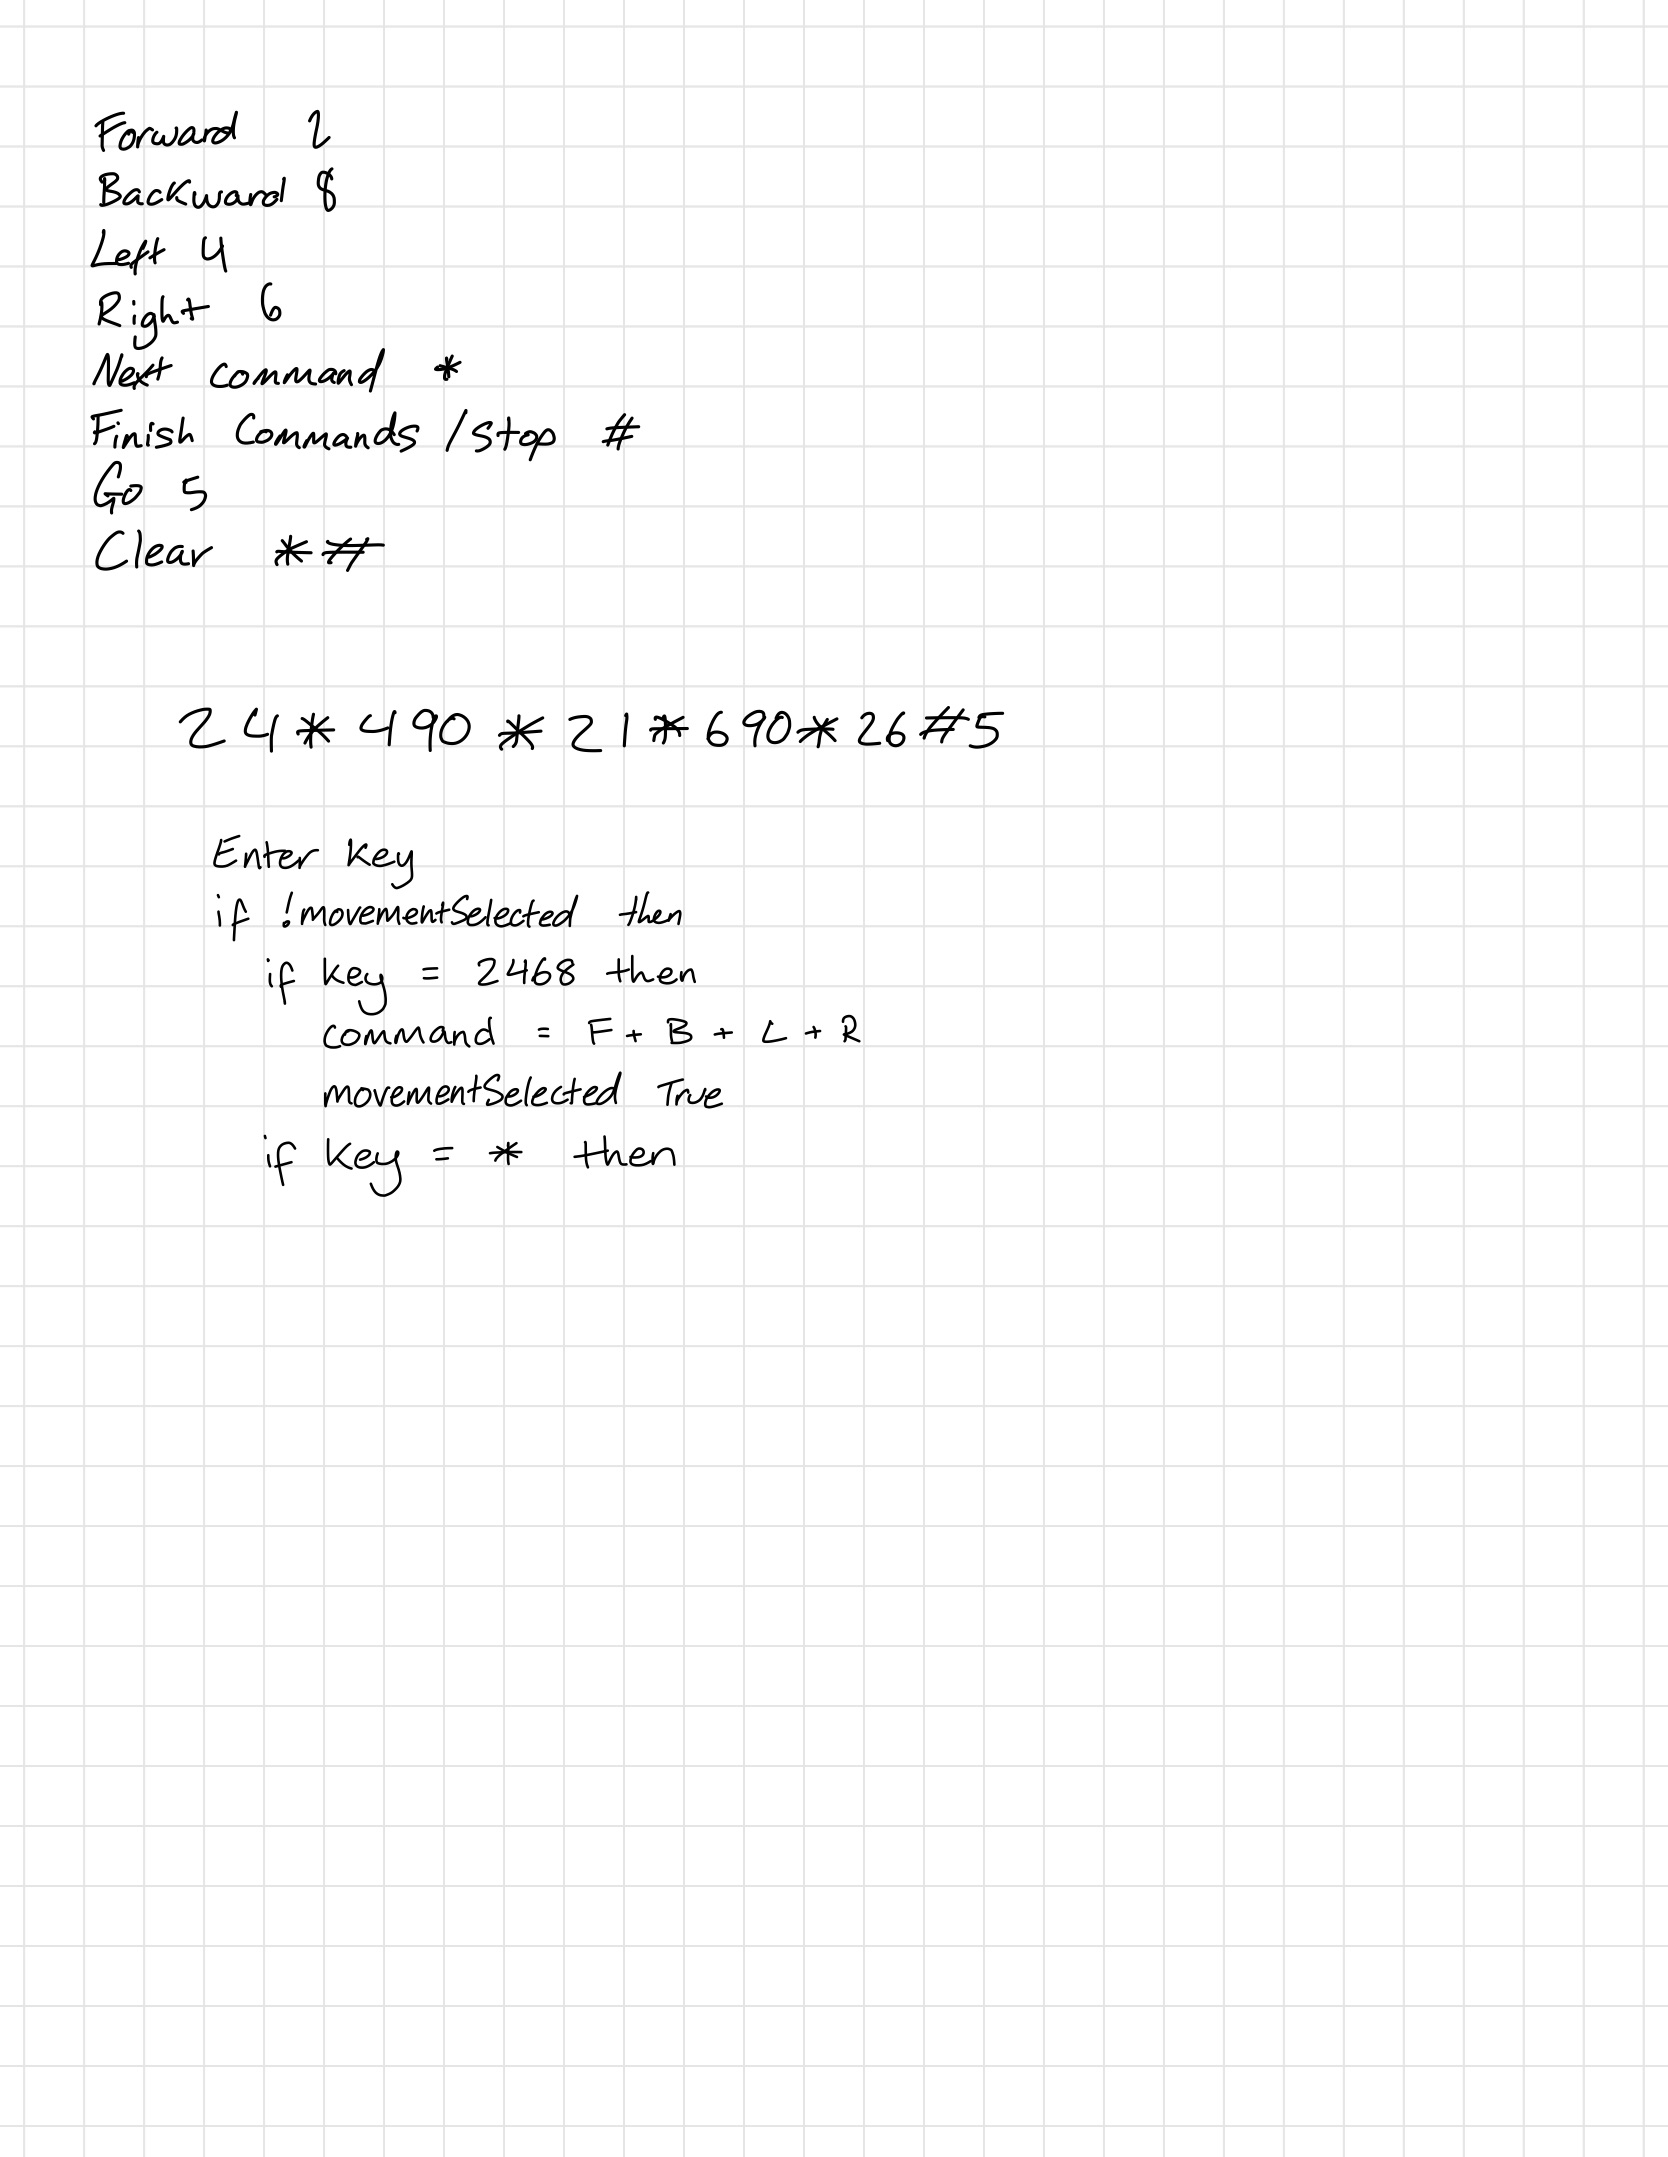 Forward 2
Backward 8
Left 4
Right 6
Next command *
Finish Commands /stop #
Go 5
Clear *#
24*490*21*690*26#5
Enter key
if !movementSelected then
if key = 2468 then
command = F+ B + L + R
movementSelected True
if key = * then